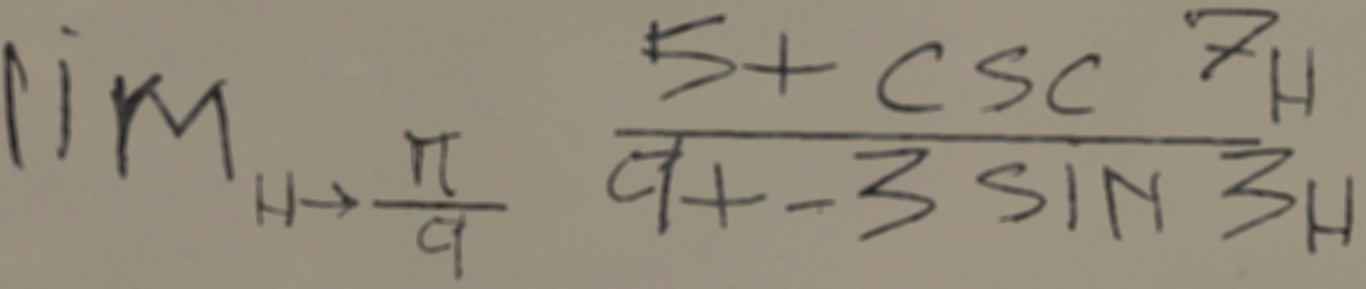 \lim_{H \to \frac{\pi}{9}} \frac{5 + \csc 7H}{9 + -3 \sin 3H}